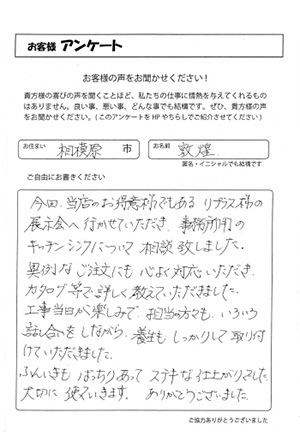 お客様 アンケート
お客様の声をお聞かせください！
貴方様の喜びの声を聞くことほど、私たちの仕事に情熱を与えてくれるもの
はありません。良い事、悪い事、どんな事でも結構です。ぜひ、貴方様の声
をお聞かせください。(このアンケートをHPやちらしでご紹介させてください)
お住まい 相模原 市 お名前 敦煌
匿名・イニシャルでも結構です
ご自由にお書きください
今回、当店のお得意様でもある リプラス様の
展示会へ行かせていただき、事務所用の
キッチンシンクについて 相談致しました。
異例なご注文にも 心よく対応いただき、
カタログ等で詳しく教えていただきました。
工事当日が楽しみで、担当の方々も、いろいろ
話し合いをしながら、養生も しっかりして取り付
けていただきました。
ふんいきも ばっちりあって ステキな仕上がりでした
大切に 使っていきます。 ありがとうございました。
ご協力ありがとうございました